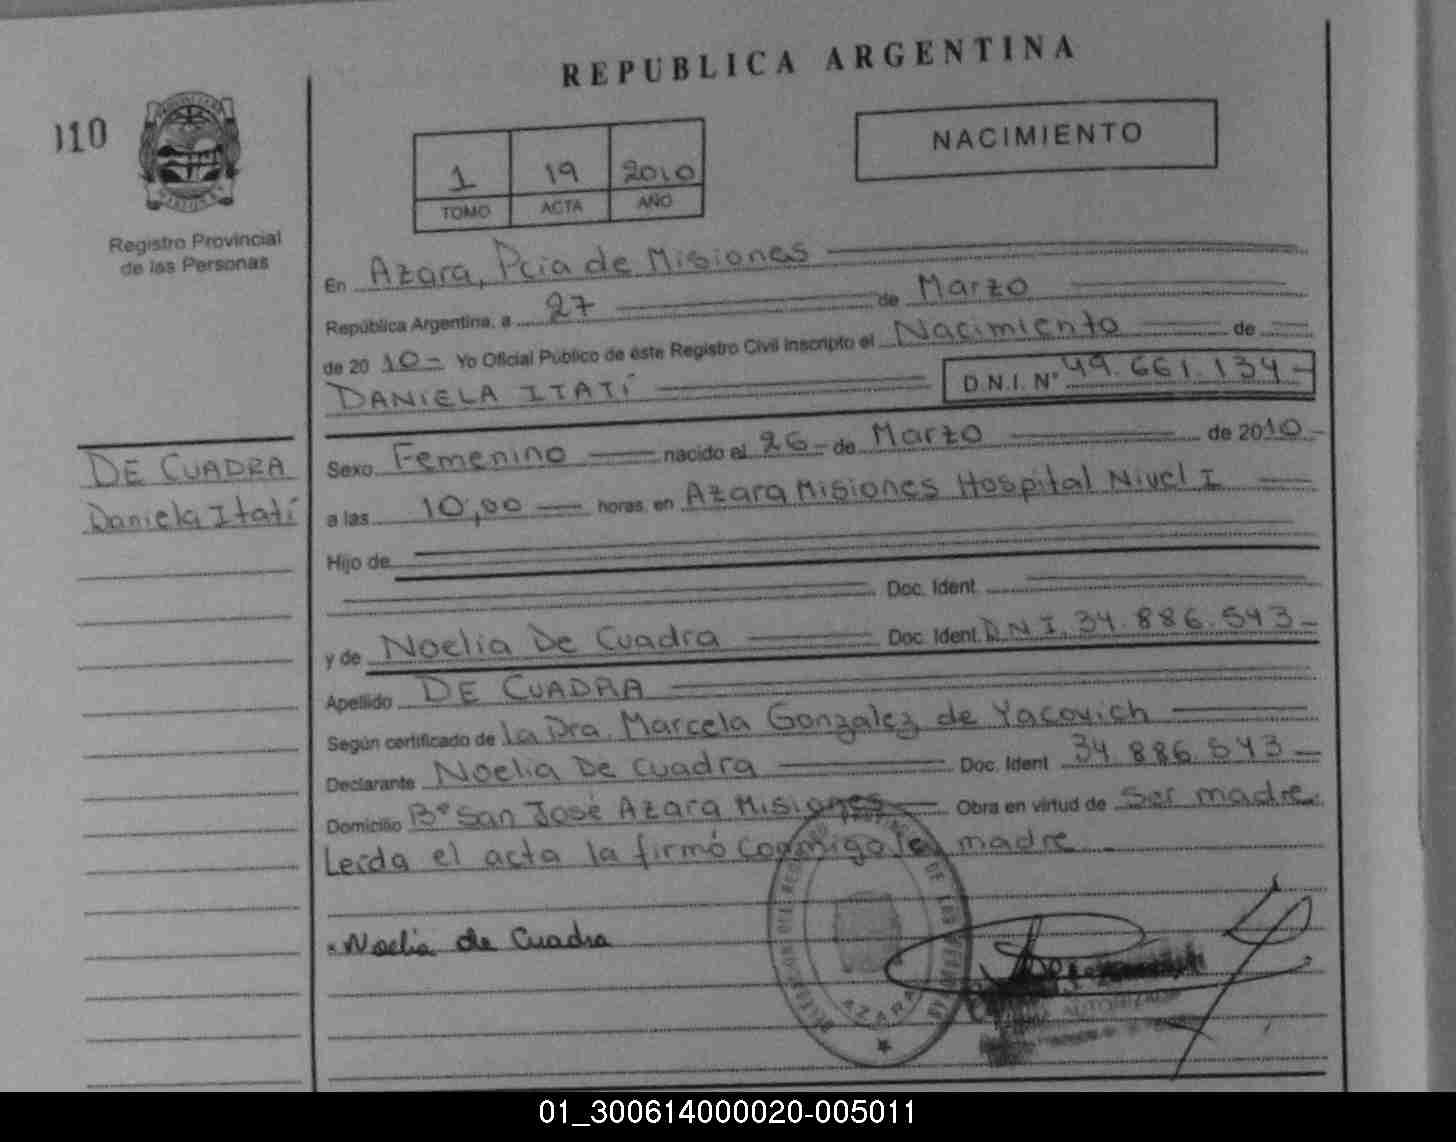 REPUBLICA ARGENTINA
110
NACIMIENTO
1 19 2010
TOMO ACTA AÑO
Registro Provincial
de las Personas
En Azara, Pcia de Misiones
República Argentina, a 27 de Marzo
de 20 10- Yo Oficial Público de éste Registro Civil inscripto el Nacimiento de
DANIELA ITATÍ D.N.I. N° 49.661.134-
DE CUADRA
Daniela Itatí
Sexo Femenino nacido el 26- de Marzo de 2010-
a las 10,00 horas, en Azara Misiones Hospital Nivel I
Hijo de
Doc. Ident.
y de Noelia De Cuadra Doc. Ident. D.N.I. 34.886.543-
Apellido DE CUADRA
Según certificado de la Dra. Marcela Gonzalez de Yacovich
Declarante Noelia De Cuadra Doc. Ident 34.886.543-
Domicilio B° San José Azara Misiones Obra en virtud de Ser madre.
Leída el acta la firmó conmigo la madre
Noelia de Cuadra
DE LAS
AZARA
AUTORIZADO
01_300614000020-005011